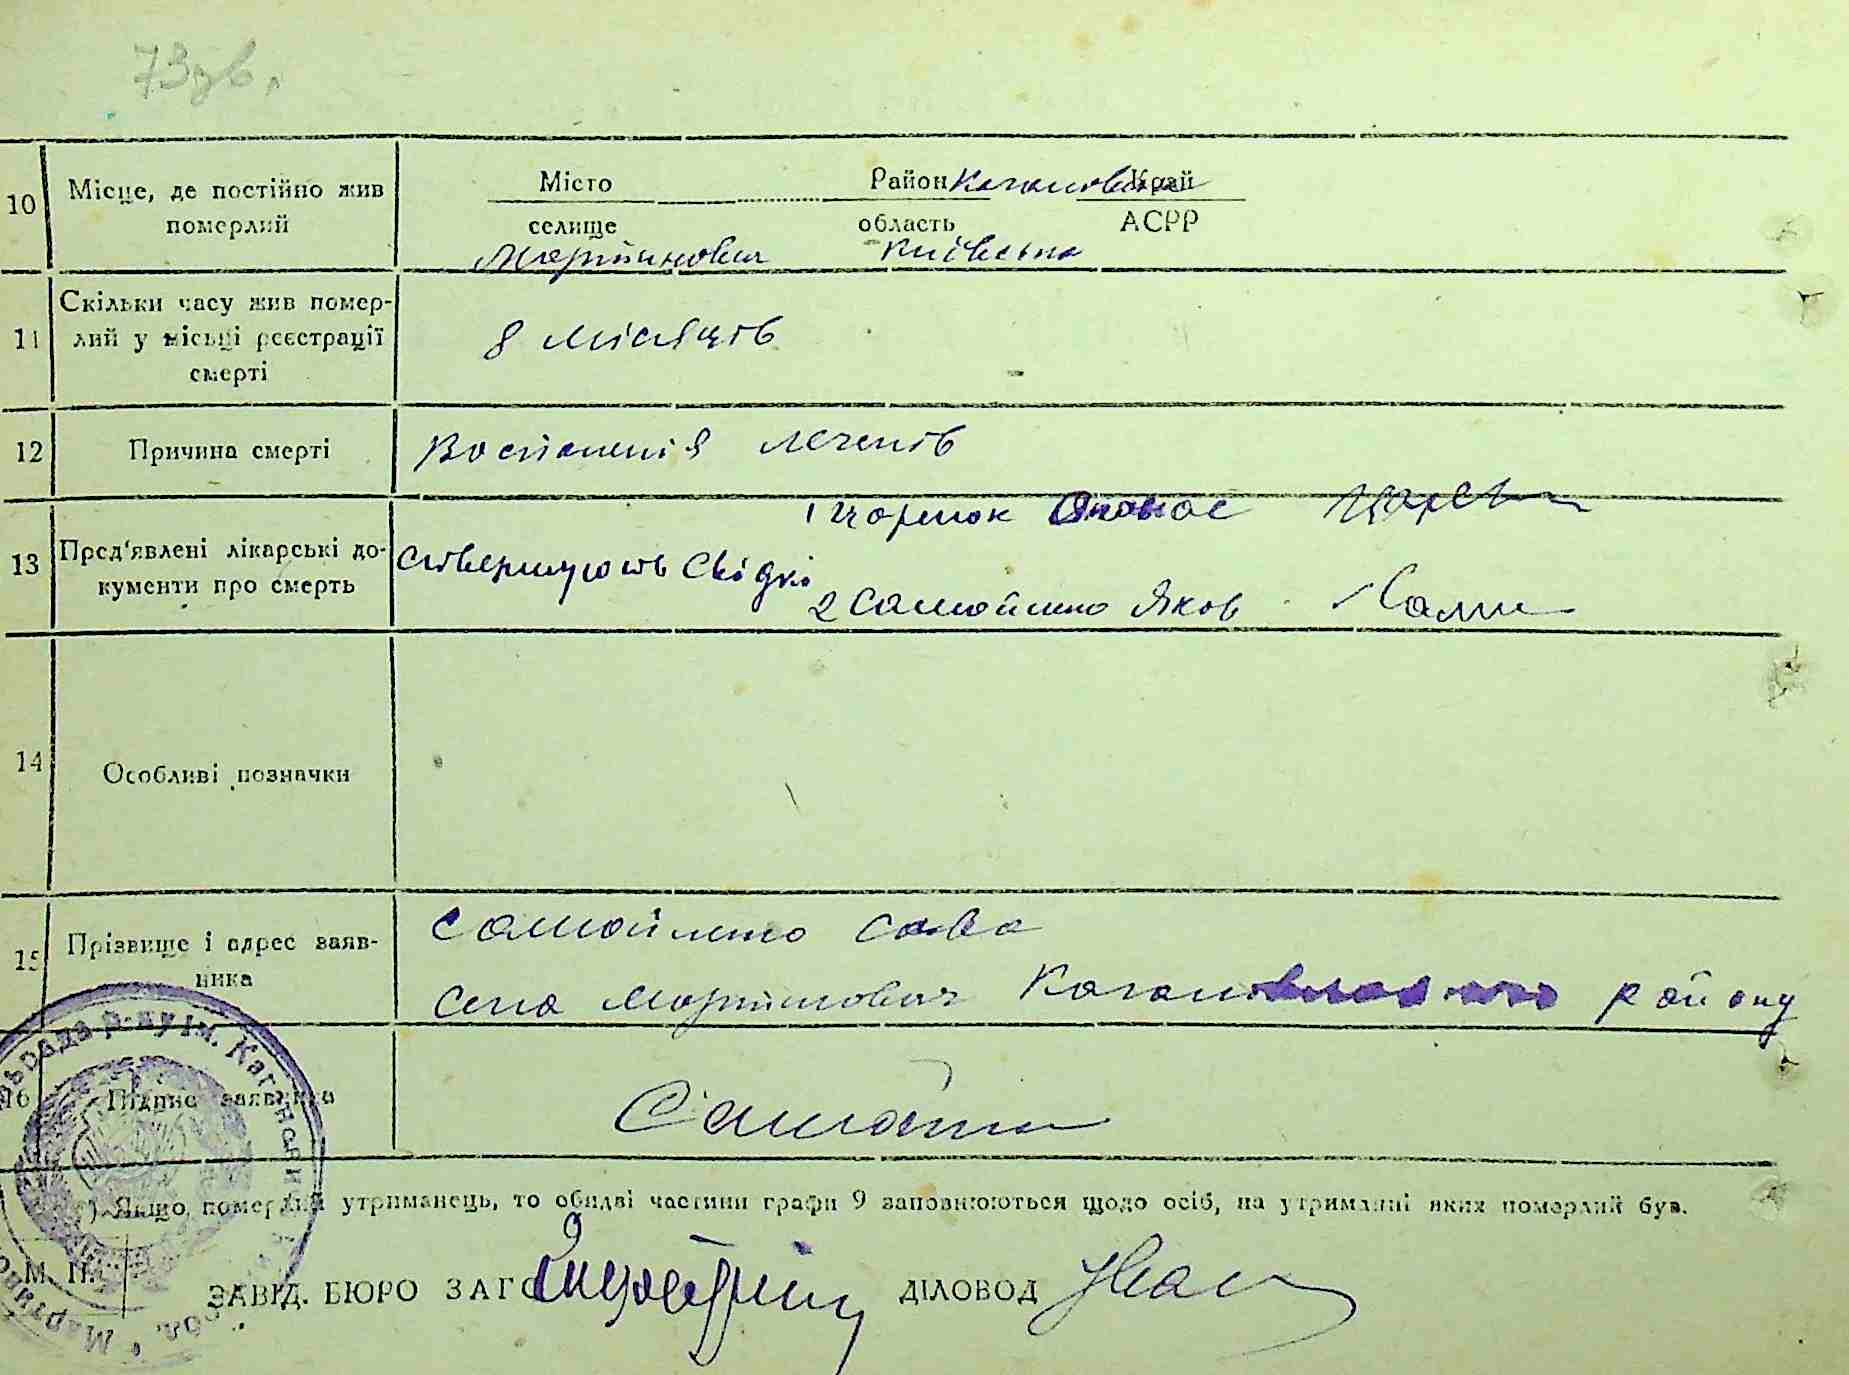 73зв.
10 Місце, де постійно жив померлий
Місто Район Кагановича Край
селище область АСРР
Мартинович Київська
11 Скільки часу жив помер-
лий у місьці реєстрації
смерті
8 місяців
12 Причина смерті
Воспаленія легенів
13 Пред'явлені лікарські до-
кументи про смерть
стверджують свідкі
1 Панас
2 Самойленко Яков Сами
14 Особливі позначки
15 Прізвище і адрес заяв-
ника
Самойленко Сава
Села Мартинович району
16 Підпис заявника
*) Якщо померлий утриманець, то обидві частини графи 9 заповнюються щодо осіб, на утриманні яких померлий був.
М. П.
ЗАВІД. БЮРО ЗАГС ДІЛОВОД
р-ну ім. Кагановича